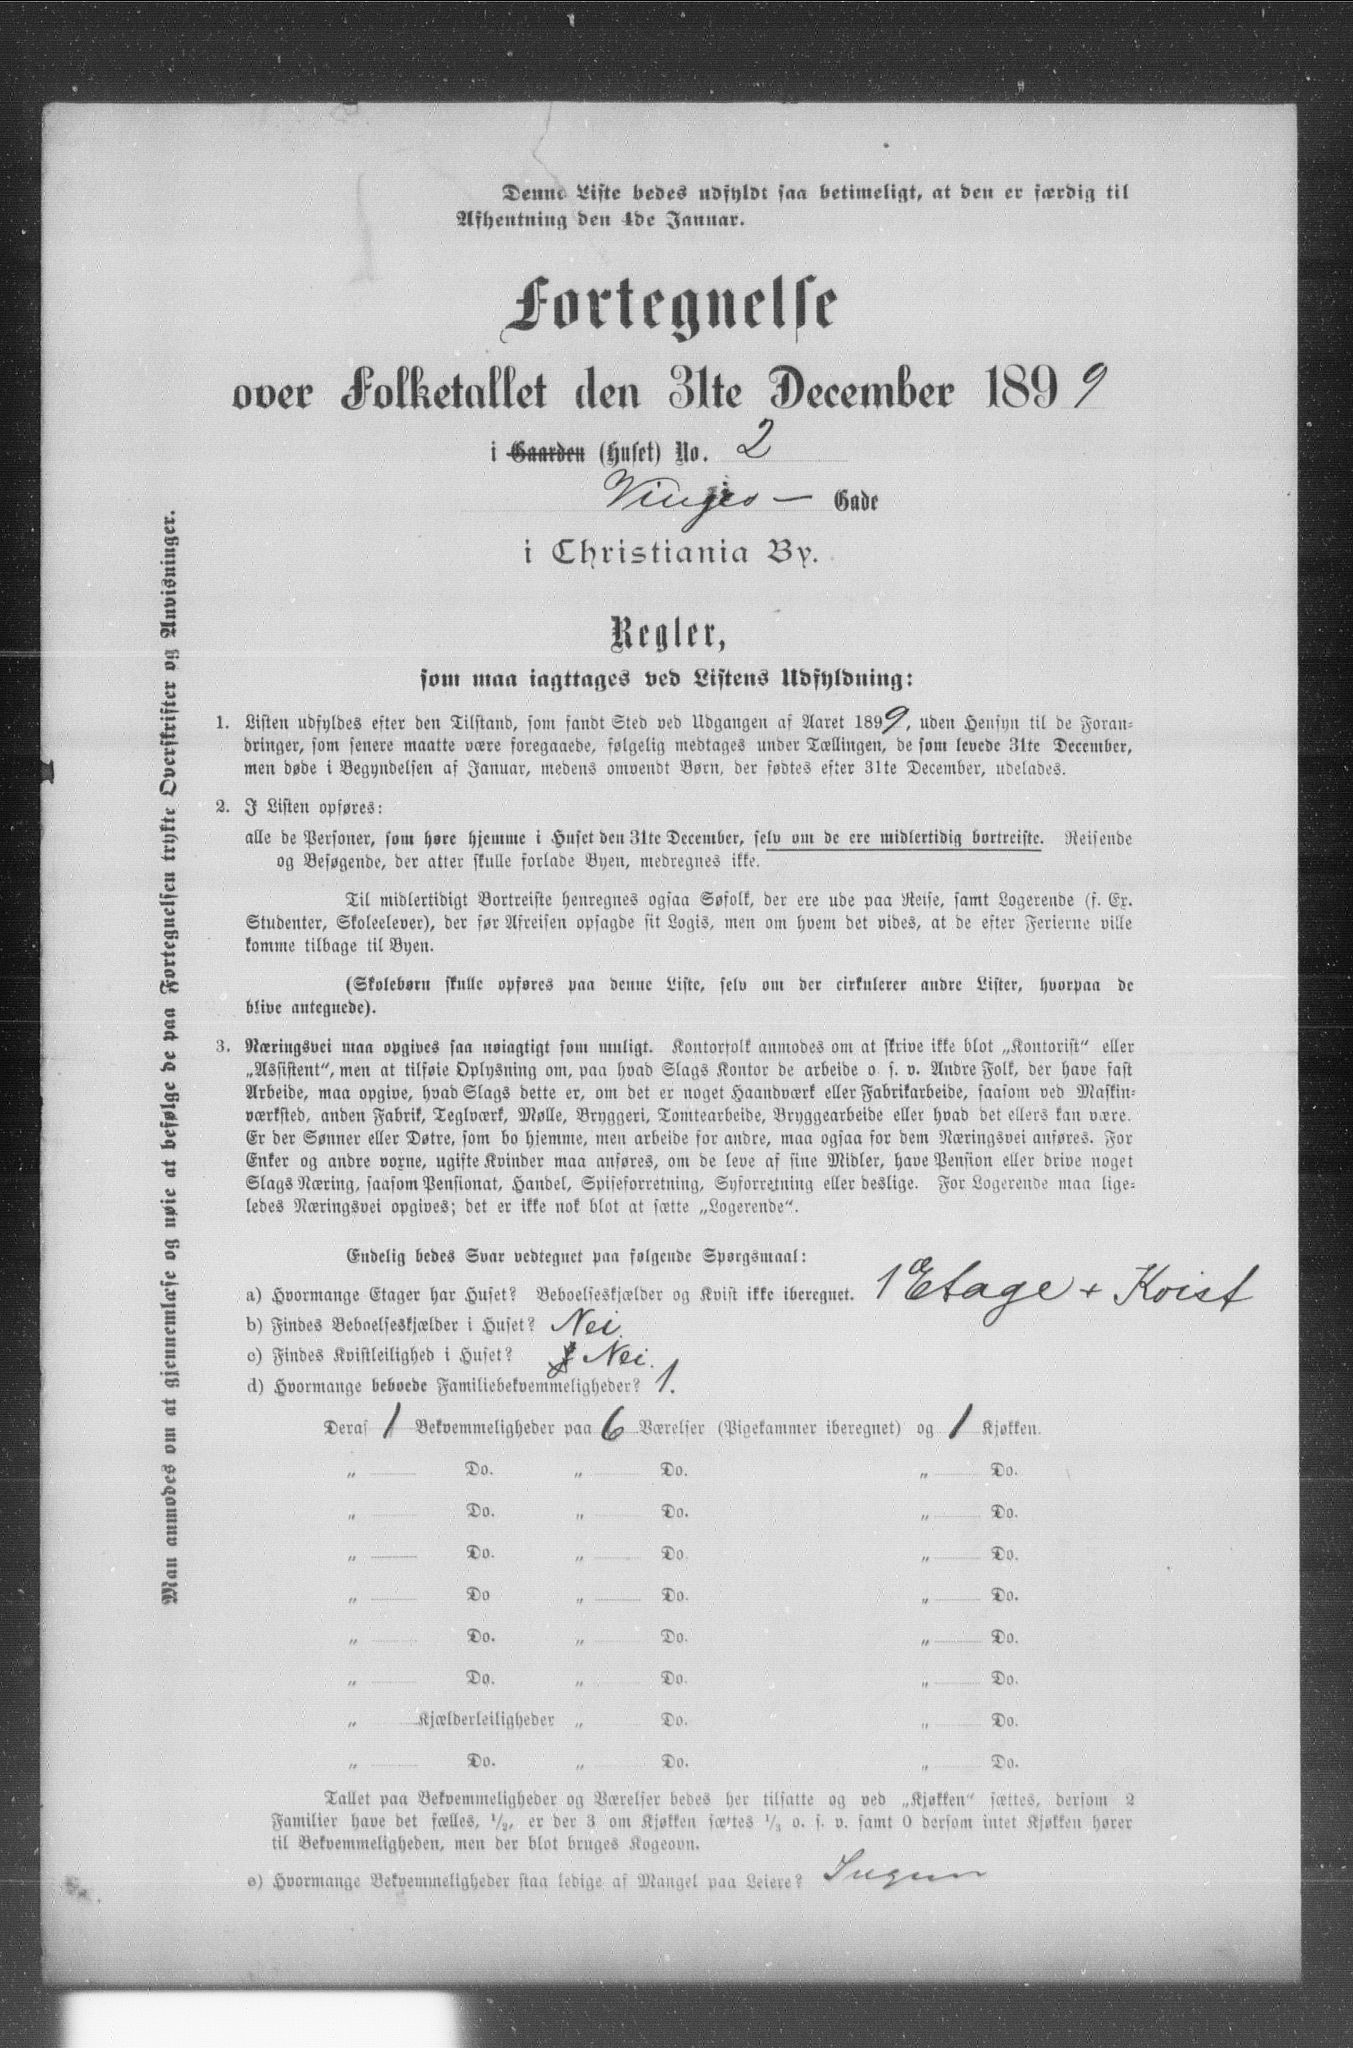 Denne Liste bedes udfyldt saa betimeligt, at den er færdig til
Afhentning den 4de Januar.
Fortegnelse
over Folketallet den 31te December 1899
i Gaarden (Huset) No. 2
Vinjes- Gade
i Christiania By.
Regler,
som maa iagttages ved Listens Udfyldning:
1. Listen udfyldes efter den Tilstand, som fandt Sted ved Udgangen af Aaret 1899, uden Hensyn til de Foran-
dringer, som senere maatte være foregaaede, følgelig medtages under Tællingen, de som levede 31te December,
men døde i Begyndelsen af Januar, medens omvendt Børn, der fødtes efter 31te December, udelades.
2. I Listen opføres:
alle de Personer, som høre hjemme i Huset den 31te December, selv om de ere midlertidig bortreiste. Reisende
og Besøgende, der atter skulle forlade Byen, medregnes ikke.
Til midlertidigt Bortreiste henregnes ogsaa Søfolk, der ere ude paa Reise, samt Logerende (f. Ex.
Studenter, Skoleelever), der før Afreisen opsagde sit Logis, men om hvem det vides, at de efter Ferierne ville
komme tilbage til Byen.
(Skolebørn skulle opføres paa denne Liste, selv om der cirkulerer andre Lister, hvorpaa de
blive antegnede).
3. Næringsvei maa opgives saa nøiagtigt som muligt. Kontorfolk anmodes om at skrive ikke blot „Kontorist“ eller
„Assistent“, men at tilføie Oplysning om, paa hvad Slags Kontor de arbeide o. s. v. Andre Folk, der have fast
Arbeide, maa opgive, hvad Slags dette er, om det er noget Haandværk eller Fabrikarbeide, saasom ved Maskin-
værksted, anden Fabrik, Teglværk, Mølle, Bryggeri, Tomtearbeide, Bryggearbeide eller hvad det ellers kan være.
Er der Sønner eller Døtre, som bo hjemme, men arbeide for andre, maa ogsaa for dem Næringsvei anføres. For
Enker og andre voxne, ugifte Kvinder maa anføres, om de leve af sine Midler, have Pension eller drive noget
Slags Næring, saasom Pensionat, Handel, Spiseforretning, Syforretning eller deslige. For Logerende maa lige-
ledes Næringsvei opgives; det er ikke nok blot at sætte „Logerende“.
Endelig bedes Svar vedtegnet paa følgende Spørgsmaal:
a) Hvormange Etager har Huset? Beboelseskjælder og Kvist ikke iberegnet. 1 Etage + Kvist
b) Findes Beboelseskjælder i Huset? Nei
c) Findes Kvistleilighed i Huset? Nei.
d) Hvormange beboede Familiebekvemmeligheder? 1.
Deraf 1 Bekvemmeligheder paa 6 Værelser (Pigekammer iberegnet) og 1 Kjøkken.
„ Do. „ Do. „ Do.
„ Do. „ Do. „ Do.
„ Do. „ Do. „ Do.
„ Do „ Do. „ Do.
„ Do. „ Do. „ Do.
„ Do. „ Do. „ Do.
„ Kjælderleiligheder „ Do. „ Do.
„ Do. „ Do. „ Do.
Tallet paa Bekvemmeligheder og Værelser bedes her tilsatte og ved „Kjøkken“ sættes, dersom 2
Familier have det fælles, 1/2, er der 3 om Kjøkken sættes 1/3 o. s. v. samt 0 dersom intet Kjøkken hører
til Bekvemmeligheden, men der blot bruges Kogeovn.
e) Hvormange Bekvemmeligheder staa ledige af Mangel paa Leiere? Ingen
Man anmodes om at gjennemlæse og nøie at befølge de paa Fortegnelsen trykte Overskrifter og Anvisninger.